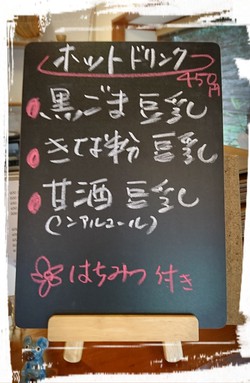 ホットドリンク
450円
黒ごま豆乳
きな粉豆乳
甘酒豆乳
(ノンアルコール)
はちみつ付き